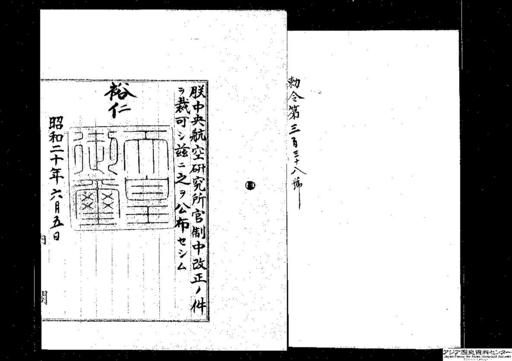 勅令第三百三十八號
朕中央航空研究所官制中改正ノ件
ヲ裁可シ茲ニ之ヲ公布セシム
裕仁
天皇
御璽
昭和二十年六月五日
内閣
アジア歴史資料センター
Japan Center for Asian Historical Records